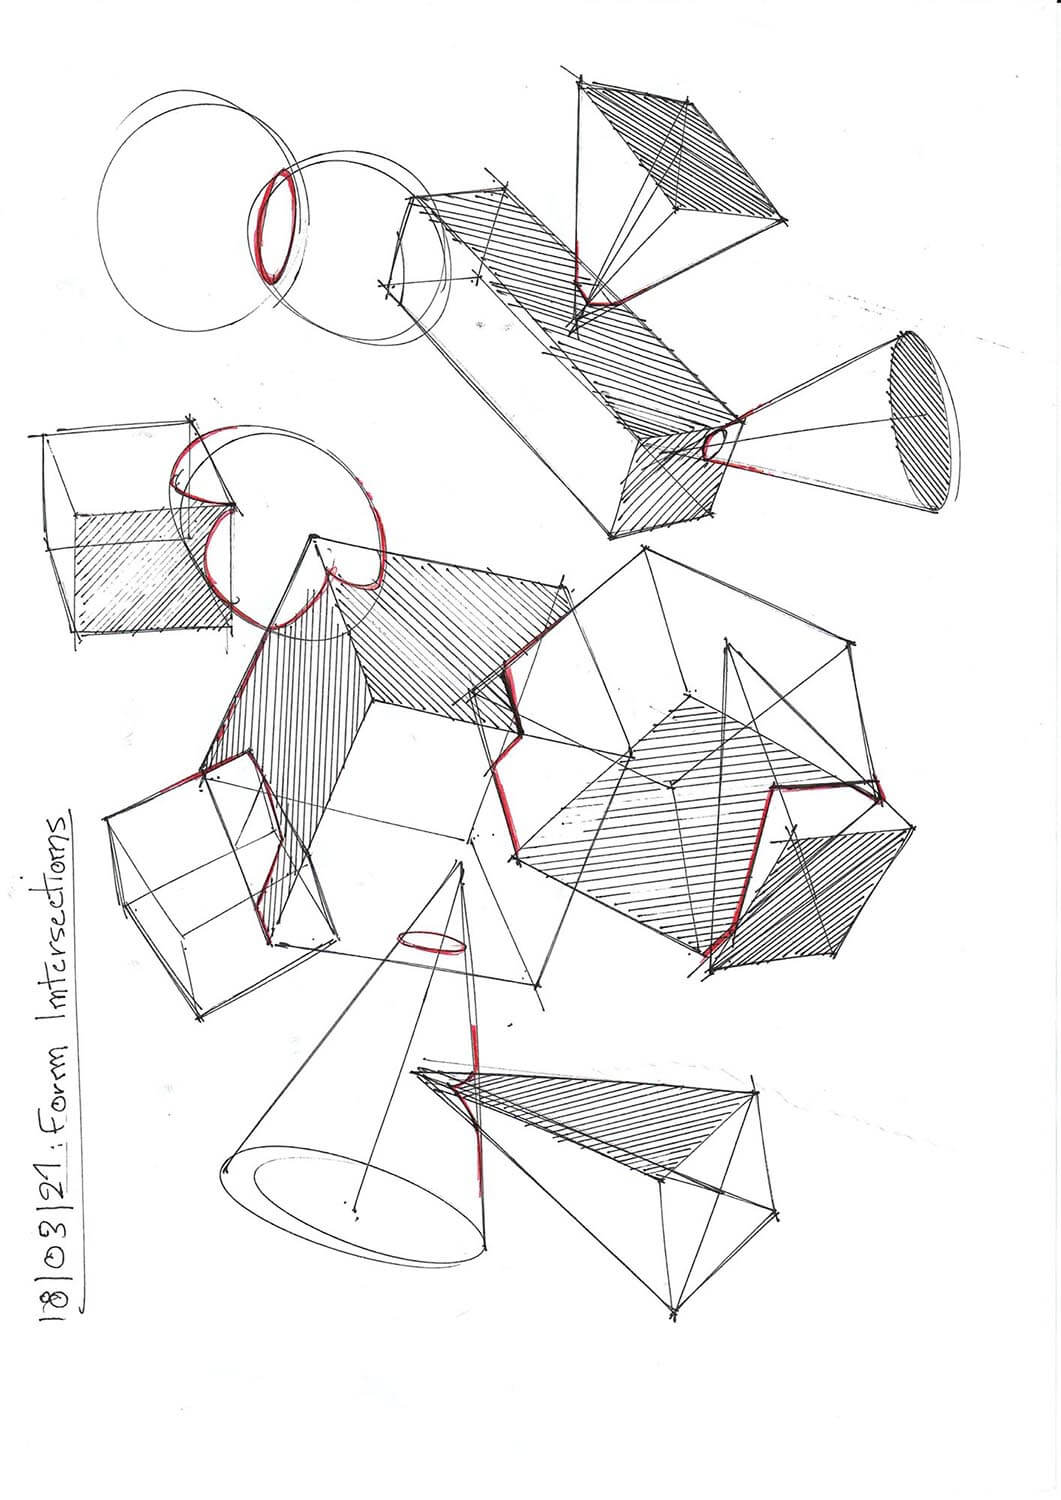 18/03/21: Form Intersections